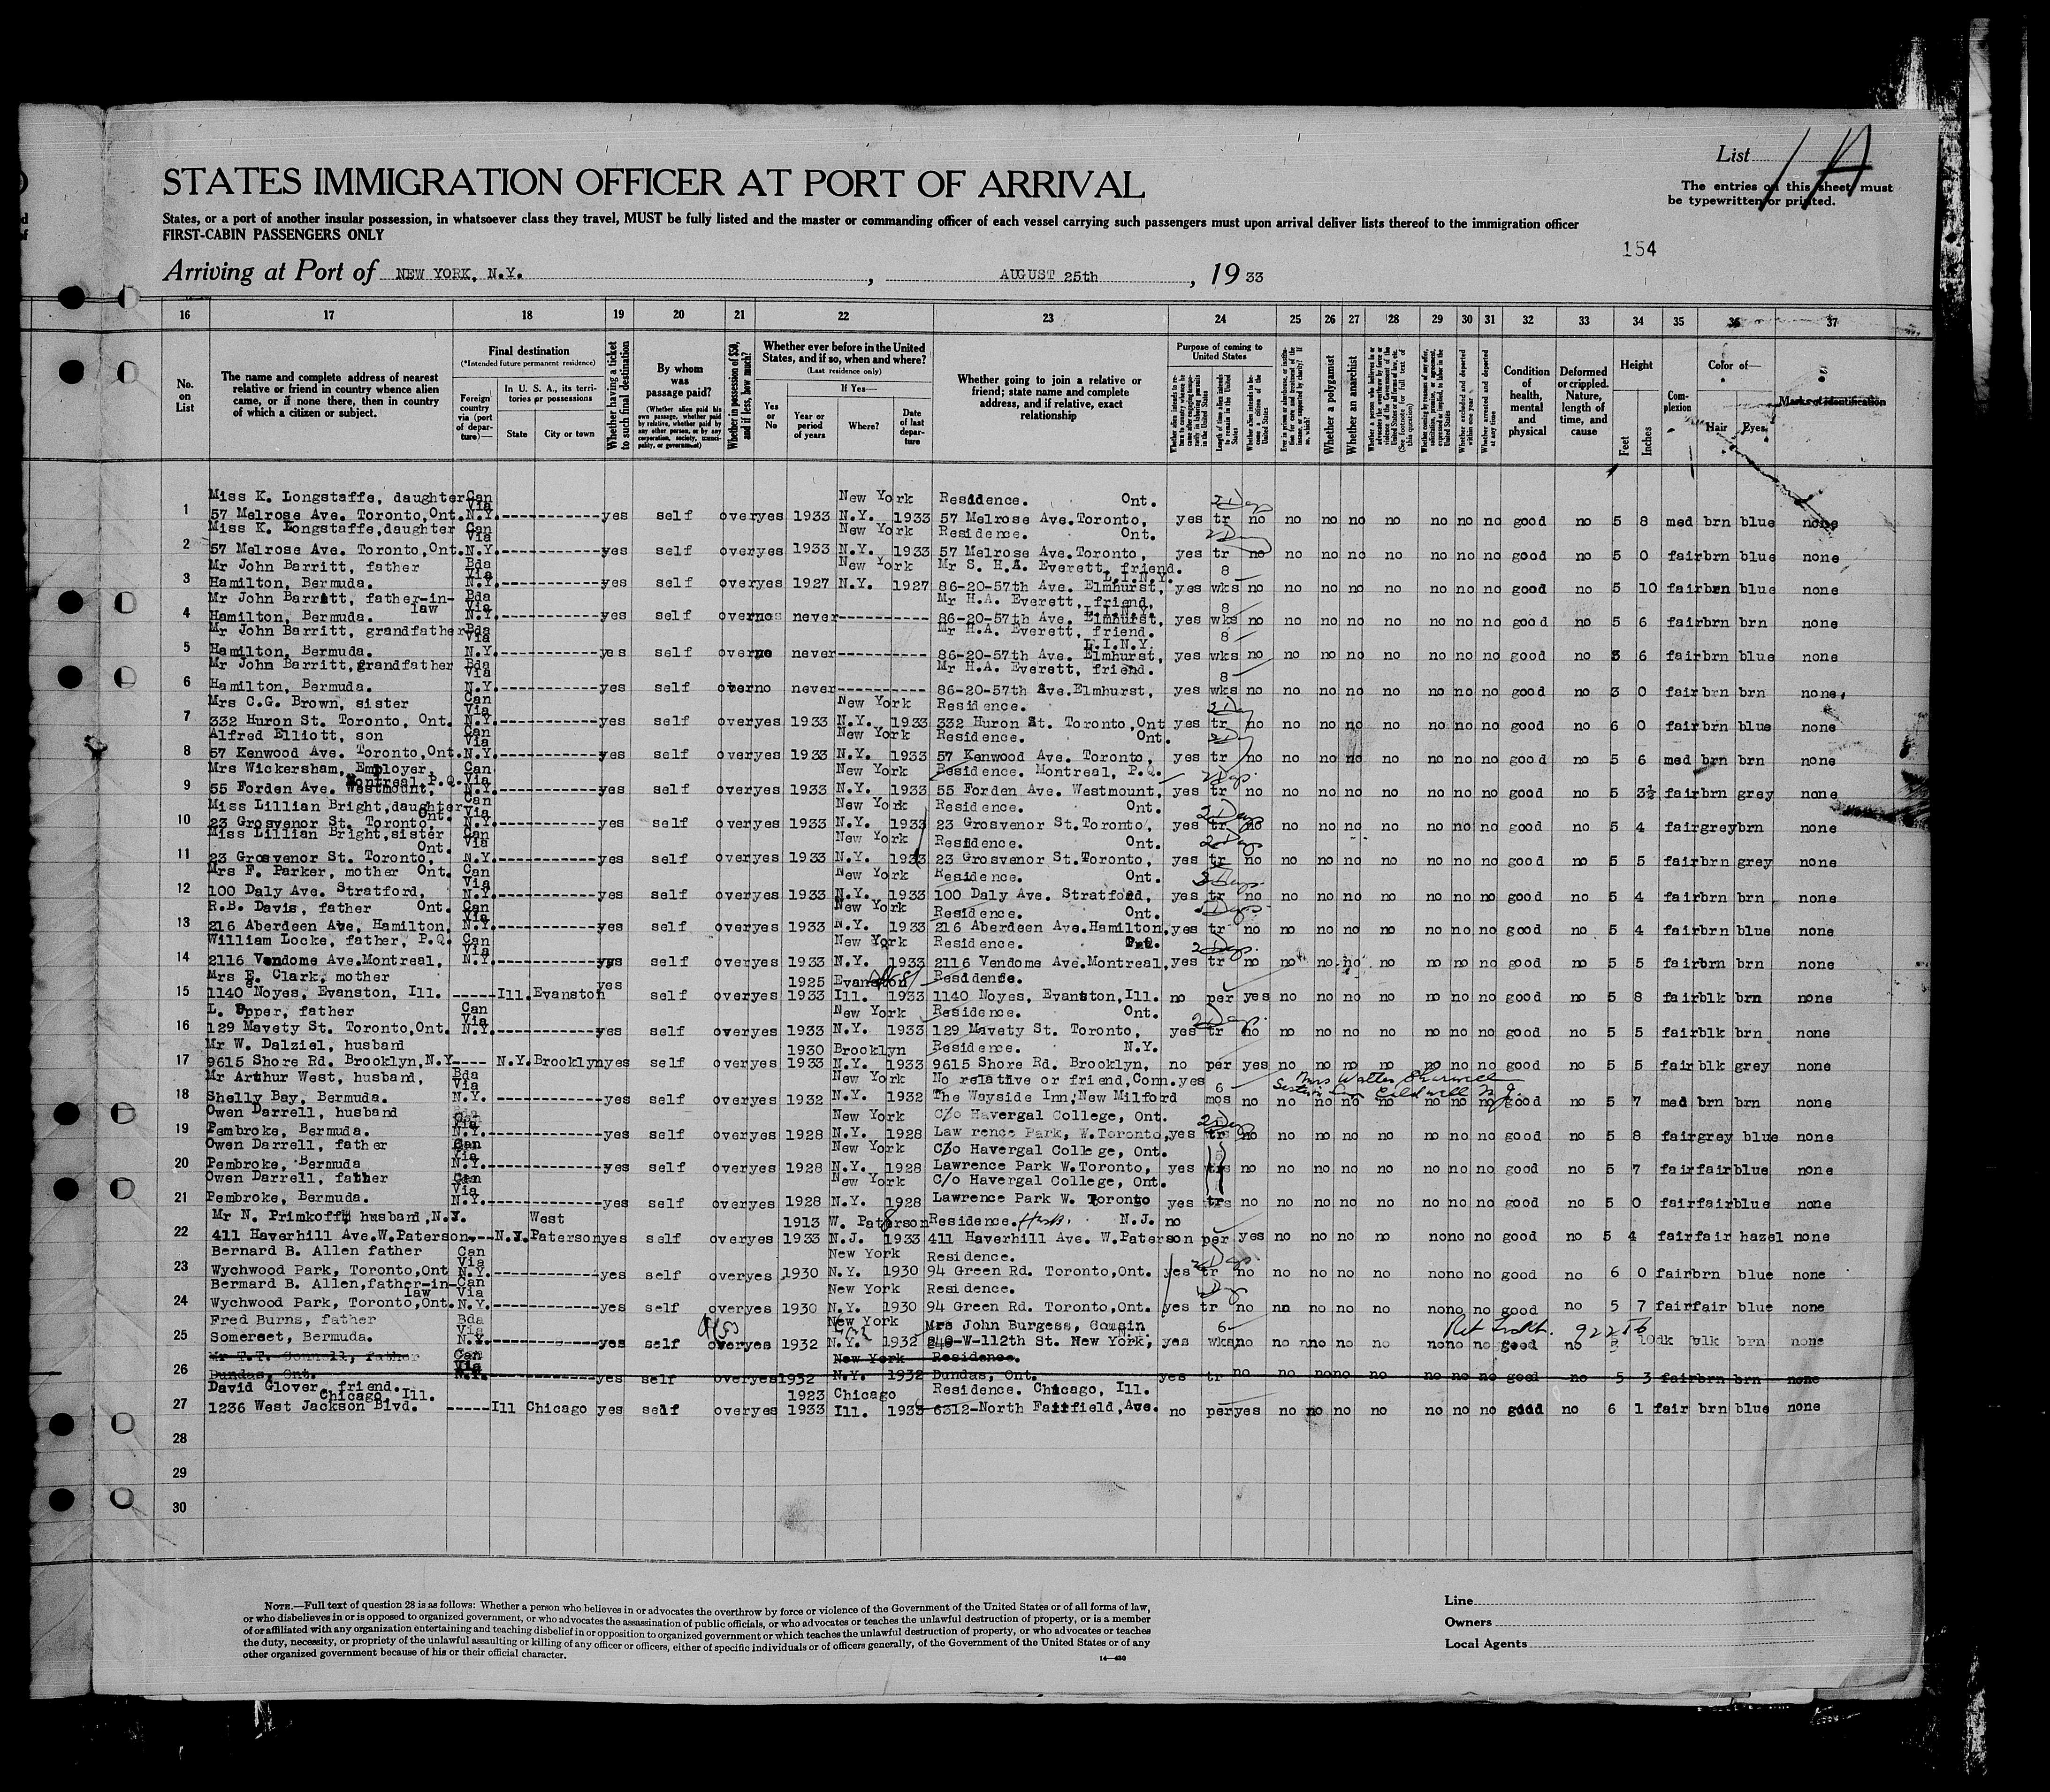 List 1A
STATES IMMIGRATION OFFICER AT PORT OF ARRIVAL
The entries on this sheet must
be typewritten or printed.
States, or a port of another insular possession, in whatsoever class they travel, MUST be fully listed and the master or commanding officer of each vessel carrying such passengers must upon arrival deliver lists thereof to the immigration officer
FIRST-CABIN PASSENGERS ONLY
154
Arriving at Port of NEW YORK, N.Y. , AUGUST 25th , 19 33
16 17 18 19 20 21 22 23 24 25 26 27 28 29 30 31 32 33 34 35 36 37
No. on List
The name and complete address of nearest relative or friend in country whence alien came, or if none there, then in country of which a citizen or subject.
Final destination
(*Intended future permanent residence)
Foreign country via (port of departure)—
In U. S. A., its territories or possessions
State
City or town
Whether having a ticket to such final destination
By whom was passage paid?
(Whether alien paid his own passage, whether paid by relative, whether paid by any other person, or by any corporation, society, municipality, or government)
Whether in possession of $50, and if less, how much?
Whether ever before in the United States, and if so, when and where?
(Last residence only)
Yes or No
If Yes—
Year or period of years
Where?
Date of last departure
Whether going to join a relative or friend; state name and complete address, and if relative, exact relationship
Purpose of coming to United States
Whether a polygamist
Whether an anarchist
Condition of health, mental and physical
Deformed or crippled. Nature, length of time, and cause
Height
Feet
Inches
Complexion
Color of—
Hair
Eyes
Marks of identification
Miss K. Longstaffe, daughter Can Via New York Residence. Ont. 2 Days
1 57 Melrose Ave. Toronto,Ont. N.Y. yes self over yes 1933 N.Y. 1933 57 Melrose Ave.Toronto, yes tr no no no no no no no no good no 5 8 med brn blue none
Miss K. Longstaffe,daughter Can Via New York Residence. Ont.
2 57 Melrose Ave. Toronto,Ont. N.Y. yes self over yes 1933 N.Y. 1933 57 Melrose Ave.Toronto, yes tr no no no no no no no no good no 5 0 fair brn blue none
Mr John Barritt, father Bda Via New York Mr S. H.A. Everett, friend. 8
3 Hamilton, Bermuda. N.Y. yes self over yes 1927 N.Y. 1927 86-20-57th Ave. Elmhurst, L.I.N.Y. yes wks no no no no no no no no good no 5 10 fair brn blue none
Mr John Barritt, father-in-law Bda Via Mr H.A. Everett, friend, 8
4 Hamilton, Bermuda. N.Y. yes self over no never 86-20-57th Ave. Elmhurst, L.I.N.Y. yes wks no no no no no no no no good no 5 6 fair brn brn none
Mr John Barritt, grandfather Bda Via Mr H.A. Everett, friend. 8
5 Hamilton, Bermuda. N.Y. yes self over no never 86-20-57th Ave. Elmhurst, L.I.N.Y. yes wks no no no no no no no no good no 3 6 fair brn blue none
Mr John Barritt,grandfather Bda Via Mr H.A. Everett, friend. 8
6 Hamilton, Bermuda. N.Y. yes self over no never 86-20-57th Ave.Elmhurst, yes wks no no no no no no no no good no 3 0 fair brn brn none.
Mrs C.G. Brown, sister Can Via New York Residence.
7 332 Huron St. Toronto, Ont. N.Y. yes self over yes 1933 N.Y. 1933 332 Huron St. Toronto,Ont yes tr no no no no no no no no good no 6 0 fair brn blue none
Alfred Elliott, son Can Via New York Residence. Ont.
8 57 Kenwood Ave. Toronto,Ont. N.Y. yes self over yes 1933 N.Y. 1933 57 Kenwood Ave. Toronto, yes tr no no no no no no no no good no 5 6 med brn brn none
Mrs Wickersham, Employer, Montreal,P.Q. Can Via New York Residence. Montreal, P.Q. 2 Days.
9 55 Forden Ave. Westmount, N.Y. yes self over yes 1933 N.Y. 1933 55 Forden Ave. Westmount, yes tr no no no no no no no no good no 5 3½ fair brn grey none
Miss Lillian Bright,daughter Ont. Can Via New York Residence. Ont. 2 Days
10 23 Grosvenor St. Toronto, N.Y. yes self over yes 1933 N.Y. 1933 23 Grosvenor St.Toronto, yes tr no no no no no no no no good no 5 4 fair grey brn none
Miss Lillian Bright,sister Ont. Can Via New York Residence. Ont. 2 Days
11 23 Grosvenor St. Toronto, N.Y. yes self over yes 1933 N.Y. 1933 23 Grosvenor St.Toronto, yes tr no no no no no no no no good no 5 5 fair brn grey none
Mrs F. Parker, mother Ont. Can Via New York Residence. Ont. Days.
12 100 Daly Ave. Stratford, N.Y. yes self over yes 1933 N.Y. 1933 100 Daly Ave. Stratford, yes tr no no no no no no no no good no 5 4 fair brn brn none
R.B. Davis, father Ont. Can Via New York Residence. Ont. Days
13 216 Aberdeen Ave, Hamilton, N.Y. yes self over yes 1933 N.Y. 1933 216 Aberdeen Ave.Hamilton, yes tr no no no no no no no no good no 5 4 fair brn blue none
William Locke, father, P.Q. Can Via New York Residence. P.Q. 2 Days.
14 2116 Vendome Ave.Montreal, N.Y. yes self over yes 1933 N.Y. 1933 2116 Vendome Ave.Montreal, yes tr no no no no no no no no good no 5 5 fair brn brn none
Mrs E. Clark, mother yes 1925 Evanston Residence.
15 1140 Noyes, Evanston, Ill. Ill. Evanston self over yes 1933 Ill. 1933 1140 Noyes, Evanston,Ill. no per yes no no no no no no no good no 5 8 fair blk brn none
L. Upper, father Can Via New York Residence. Ont. 2 Days.
16 129 Mavety St. Toronto,Ont. N.Y. yes self over yes 1933 N.Y. 1933 129 Mavety St. Toronto, yes tr no no no no no no no no good no 5 5 fair blk brn none
Mr W. Dalziel, husband 1930 Brooklyn Residence. N.Y.
17 9615 Shore Rd. Brooklyn,N.Y N.Y. Brooklyn yes self over yes 1933 N.Y. 1933 9615 Shore Rd. Brooklyn, no per yes no no no no no no no good no 5 5 fair blk grey none
Mr Arthur West, husband, Bda Via New York No relative or friend,Conn. yes 6 Mrs Walter
18 Shelly Bay, Bermuda. N.Y. yes self over yes 1932 N.Y. 1932 The Wayside Inn,New Milford mos no no no no no no no no good no 5 7 med brn brn none
Caldwell N.J.
Owen Darrell, husband Via New York C/o Havergal College, Ont.
19 Pembroke, Bermuda. N.Y. yes self over yes 1928 N.Y. 1928 Law rence Park, W.Toronto, yes trs no no no no no no no no good no 5 8 fair grey blue none
Owen Darrell, father Can Via New York C/o Havergal College, Ont.
20 Pembroke, Bermuda N.Y. yes self over yes 1928 N.Y. 1928 Lawrence Park W.Toronto, yes trs no no no no no no no no good no 5 7 fair fair blue none
Owen Darrell, father Can Via New York C/o Havergal College, Ont.
21 Pembroke, Bermuda. N.Y. yes self over yes 1928 N.Y. 1928 Lawrence Park W. Toronto yes trs no no no no no no no no good no 5 0 fair fair blue none
Mr N. Primkoff, husband,N.J. West 1913 W. Paterson Residence. Husb. N.J. no
22 411 Haverhill Ave.W.Paterson, N.J. Paterson yes self over yes 1933 N.J. 1933 411 Haverhill Ave. W.Paterson per yes no no no no no no no good no 5 4 fair fair hazel none
Bernard B. Allen father Can Via New York Residence. Days.
23 Wychwood Park, Toronto,Ont N.Y. yes self over yes 1930 N.Y. 1930 94 Green Rd. Toronto,Ont. yes tr no no no no no no no no good no 6 0 fair brn blue none
Bermard B. Allen,father-in-law Can Via New York Residence.
24 Wychwood Park, Toronto,Ont. N.Y. yes self over yes 1930 N.Y. 1930 94 Green Rd. Toronto,Ont. yes tr no nn no no no no no no good no 5 7 fair fair blue none
Fred Burns, father Bda Via New York Mrs John Burgess, Cousin 6
25 Somerset, Bermuda. N.Y. yes self over yes 1932 N.Y. 1932 240-W-112th St. New York, yes wks no no no no no no no no good no 5 10 dk blk brn none
Mr T.T. Connell, father Can Via New York Residence.
26 Dundas, Ont. N.Y. yes self over yes 1932 N.Y. 1932 Dundas, Ont. yes tr no no no no no no no no good no 5 3 fair brn brn none
David Glover, friend. Chicago, Ill. 1923 Chicago Residence. Chicago, Ill.
27 1236 West Jackson Blvd. Ill Chicago yes self over yes 1933 Ill. 1933 6312-North Fairfield,Ave. no per yes no no no no no no no good no 6 1 fair brn blue none
28
29
30
NOTE.—Full text of question 28 is as follows: Whether a person who believes in or advocates the overthrow by force or violence of the Government of the United States or of all forms of law,
or who disbelieves in or is opposed to organized government, or who advocates the assassination of public officials, or who advocates or teaches the unlawful destruction of property, or is a member
of or affiliated with any organization entertaining and teaching disbelief in or opposition to organized government or which teaches the unlawful destruction of property, or who advocates or teaches
the duty, necessity, or propriety of the unlawful assaulting or killing of any officer or officers, either of specific individuals or of officers generally, of the Government of the United States or of any
other organized government because of his or their official character.
14—430
Line
Owners
Local Agents